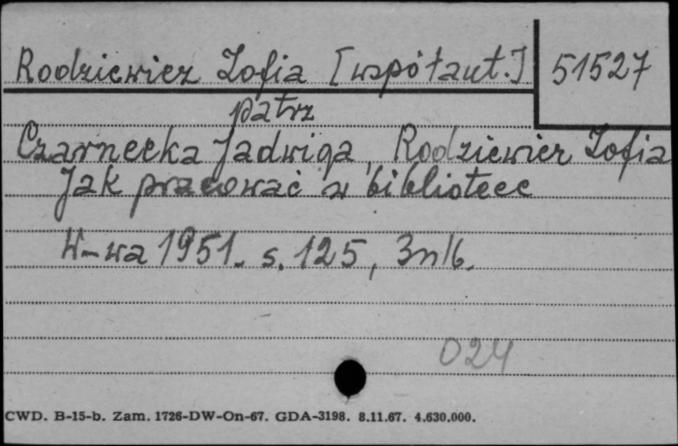 Rodziewicz Zofia [współaut.] 51527
patrz
Czarnecka Jadwiga, Rodziewicz Zofia
Jak pracować w bibliotece
W-wa 1951. s. 125, 3nlb.
024
CWD. B-15-b. Zam. 1726-DW-On-67. GDA-3198. 8.11.67. 4.630.000.